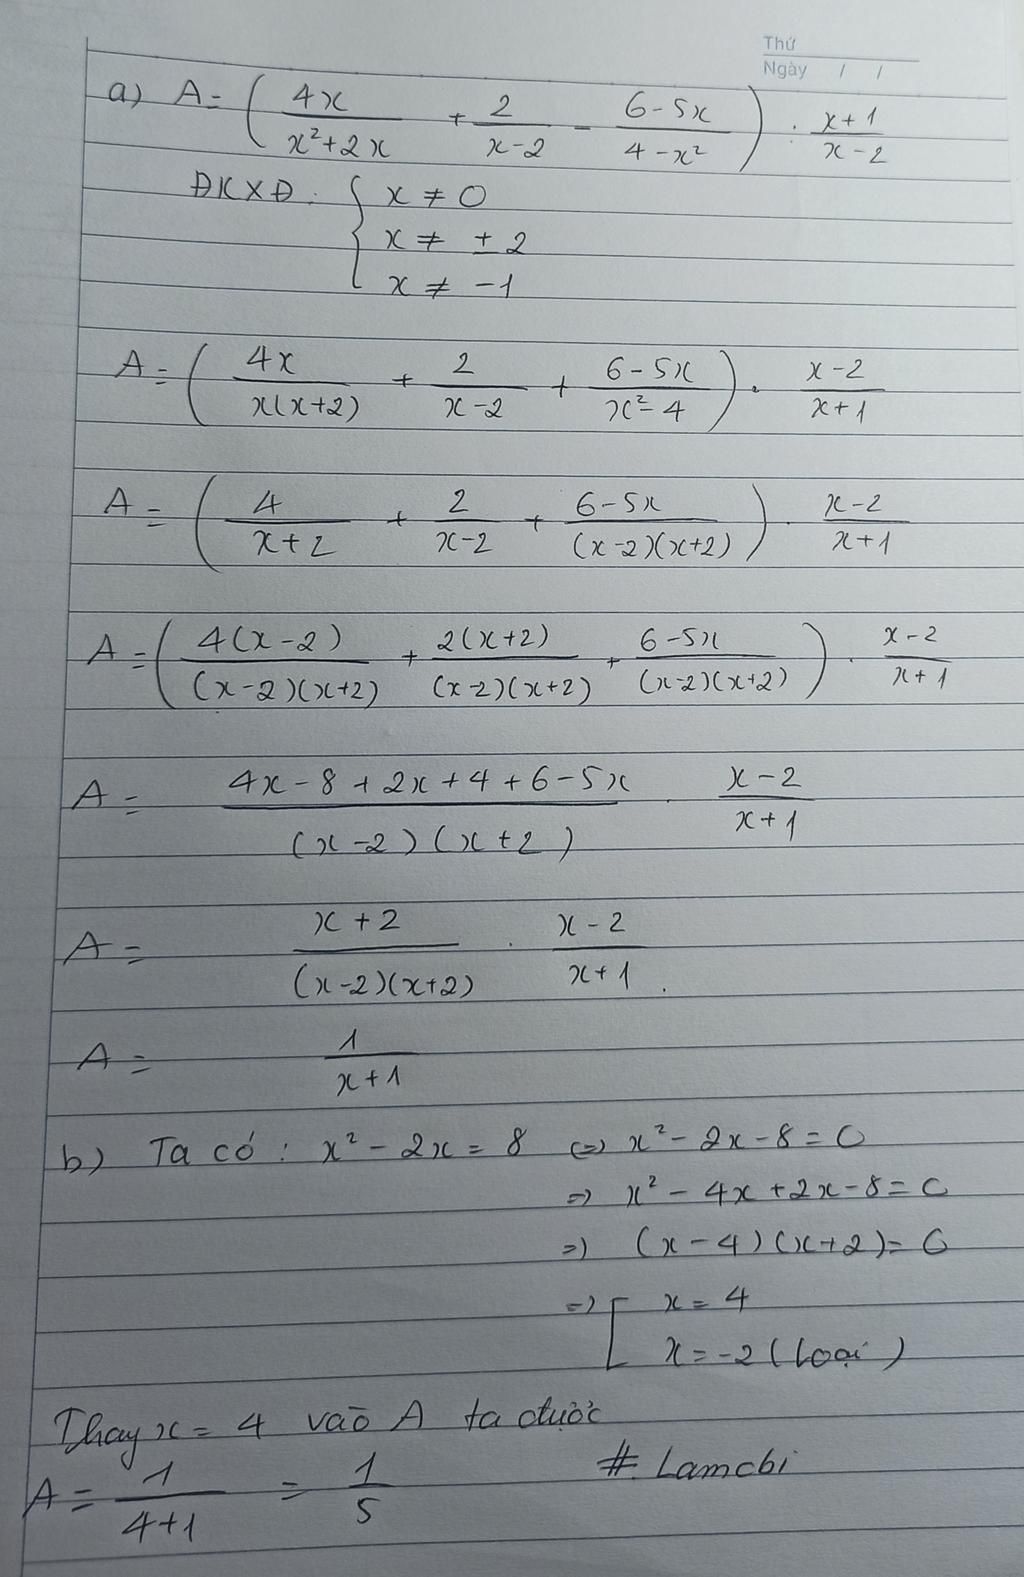 Thứ
Ngày / /
a) A = ( 4x/(x²+2x) + 2/(x-2) - (6-5x)/(4-x²) ) : (x+1)/(x-2)
ĐKXĐ: { x ≠ 0
x ≠ ±2
x ≠ -1
A = ( 4x/(x(x+2)) + 2/(x-2) + (6-5x)/(x²-4) ) . (x-2)/(x+1)
A = ( 4/(x+2) + 2/(x-2) + (6-5x)/((x-2)(x+2)) ) . (x-2)/(x+1)
A = ( 4(x-2)/((x-2)(x+2)) + 2(x+2)/((x-2)(x+2)) + (6-5x)/((x-2)(x+2)) ) . (x-2)/(x+1)
A = (4x-8+2x+4+6-5x)/((x-2)(x+2)) . (x-2)/(x+1)
A = (x+2)/((x-2)(x+2)) . (x-2)/(x+1).
A = 1/(x+1)
b) Ta có: x² - 2x = 8 <=> x² - 2x - 8 = 0
=> x² - 4x + 2x - 8 = 0
=> (x-4)(x+2) = 0
=> [ x = 4
x = -2 (loại)
Thay x = 4 vào A ta được
A = 1/(4+1) = 1/5 # Lamcbi